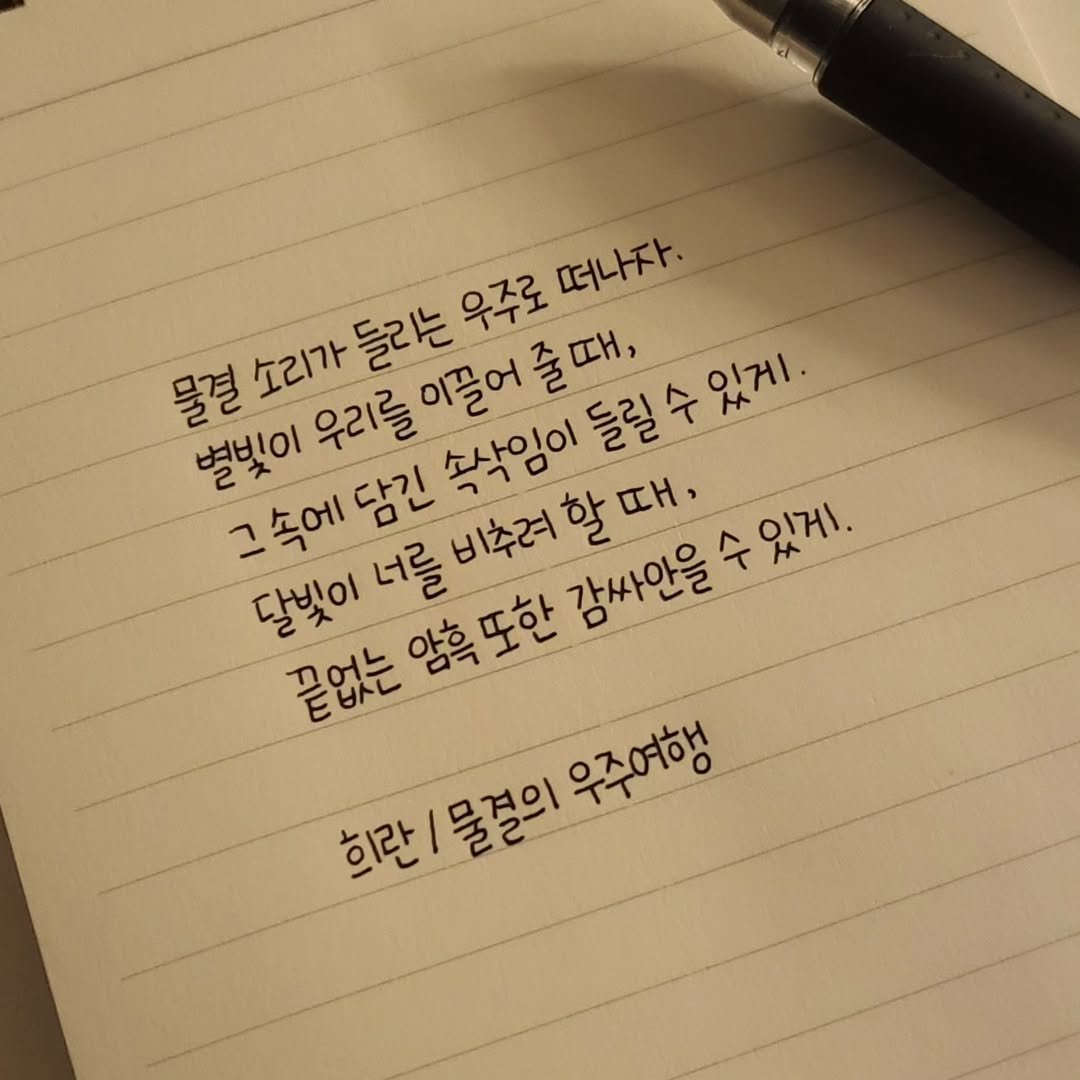 물결 소리가 들리는 우주로 떠나자.
별빛이 우리를 이끌어 줄 때,
그 속에 담긴 속삭임이 들릴 수 있게.
달빛이 너를 비추려 할 때,
끝없는 암흑 또한 감싸안을 수 있게.
희란 / 물결의 우주여행